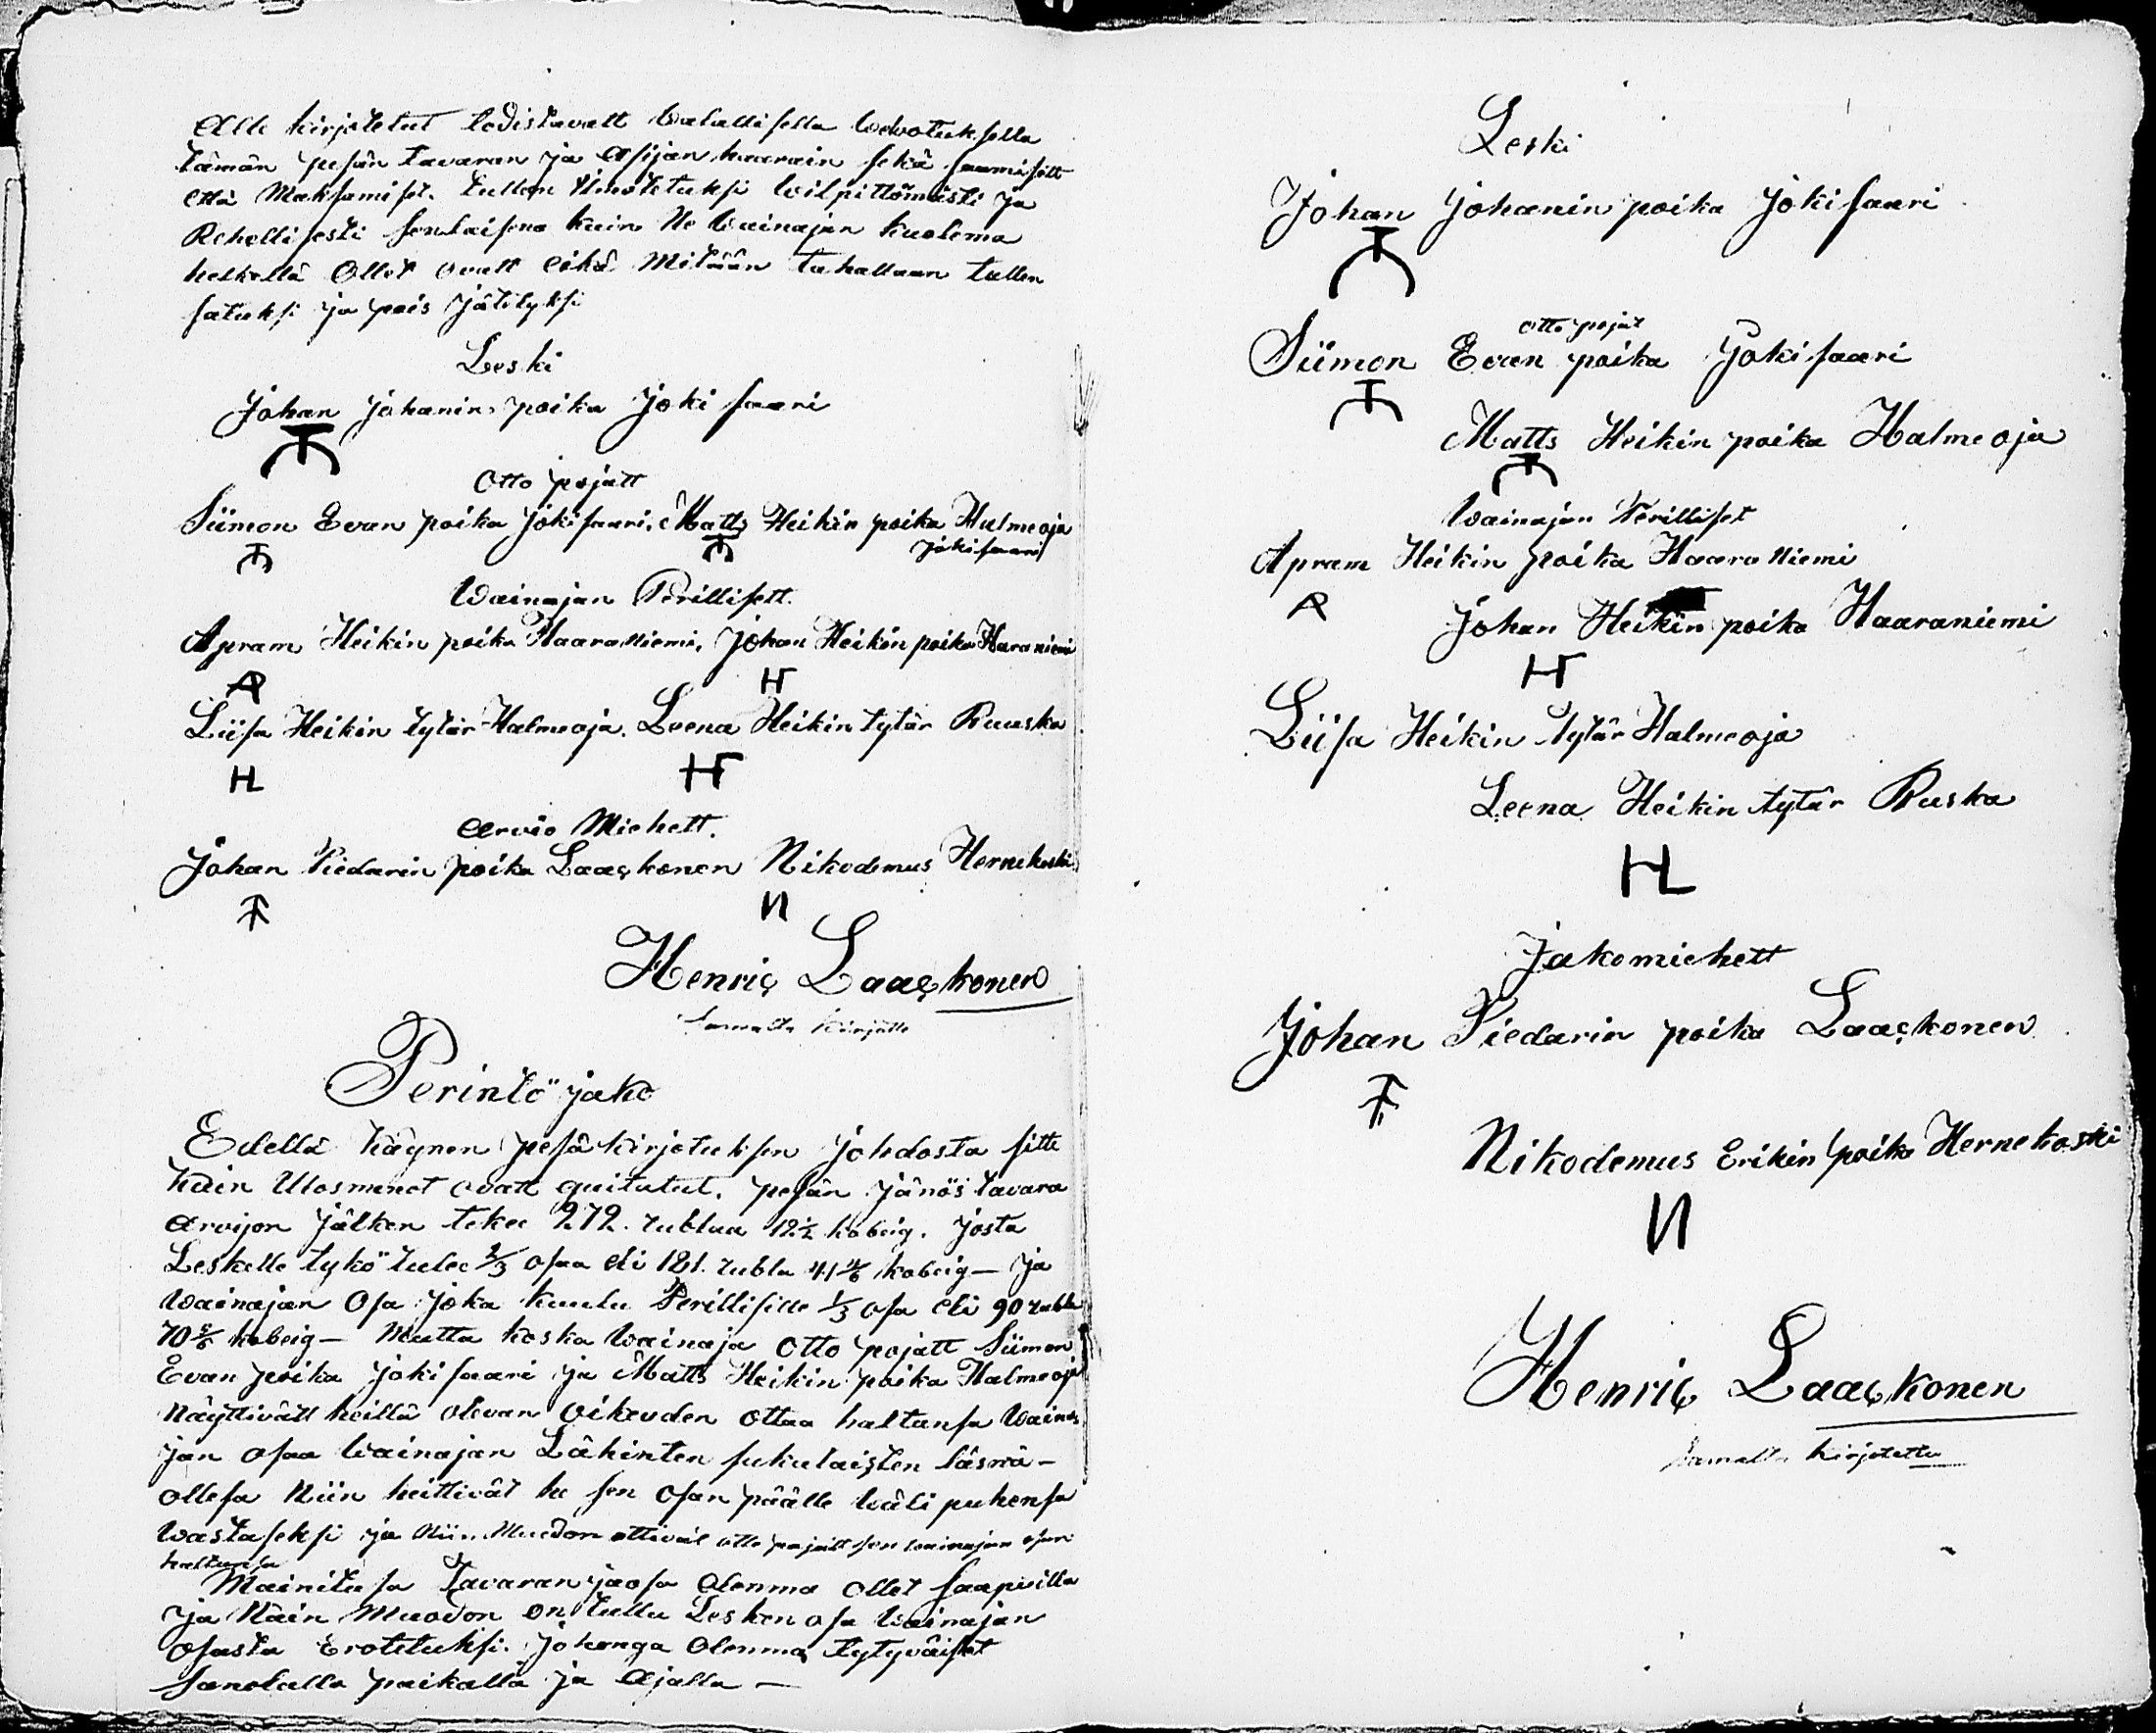 Alle kirjotetut todistavatt Walallisella Welvotuksella
tämän pesän tavaran ja Asijan haarain sekä saamisett
että Maksamiset. tullen Ilmotetuksi Wilpittömästi ja
Rehellisesti senlaisena kuin Ne Wainajan kuolema
hetkellä Ollet ovatt eikä Mitään tahallaan tullen
saluksi ja pois jätetyksi
Leski
Johan Johanin poika Jokisaari
Otto pojatt
Siimon Evan poika Jokisaari, Matts Heikin poika Halmeoja
Jokisaari
Wainajan Perillisett.
Apram Heikin poika Haaraniemi, Johan Heikin poika Haraniemi
A H
Liisa Heikin tytär Halmeoja. Leena Heikin tytär Ruuska
HL H
Arvio Miehett.
Johan Piedarin poika Laaçkonen Nikodemus Hernekoski
И
Henriç Laaçkonen
Samalla kirjotti
Perintö jako
Edellä käynen pesäkirjotuksen johdosta sitte
kuin Ulosmenot ovatt quitatut. pesän jänös tavara
arvijon jälken tekee 272. rublaa 12½ kobeig. josta
Leskelle tykö tulee 2/3 osaa eli 181. rubla 41 4/6 kobeig — ja
Wainajan Osa joka kuulu Perillisille 1/3 osa eli 90 rubla
70 5/6 kobeig — Mutta koska Wainaja Otto pojatt Siimon
Evan poika Jokisaari ja Matts Heikin poika Halmeoja
Näyttivätt heillä olevan Oikeuden ottaa haltunsa Waina
jan osaa Wainajan Lähinten sukulaisten läsnä-
ollesa Niin heittivät he sen Osan päälle Wäli puhensa
Wastaseksi ja Niin Muodon ottivat otto pojatt sen wainajan osan
haltunsa
Mainitusa Tavaran jaosa Olemma ollet saapuilla
ja Näin Muodon on tullu Lesken osa Wainajan
Osasta Erotetuksi. Johonga Olemma tytyväiset
Sanotulla paikalla ja Ajalla —
Leski
Johan Johanin poika Jokisaari
otto pojat
Siimon Evan poika Jokisaari
Matts Heikin poika Halmeoja
Wainajan Perilliset
Apram Heikin poika Haaraniemi
A
Johan Heikin poika Haaraniemi
H
Liisa Heikin tytär Halmeoja
Leena Heikin tytär Ruska
HL
Jakomiehett
Johan Piedarin poika Laaçkonen
Nikodemus Erikin poika Hernekoski
И
Henriç Laaçkonen
Samalla kirjotettu